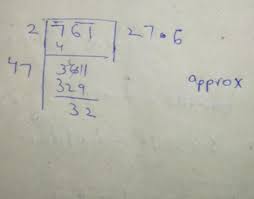 2 761 27.6
4
47 361
329
32
approx